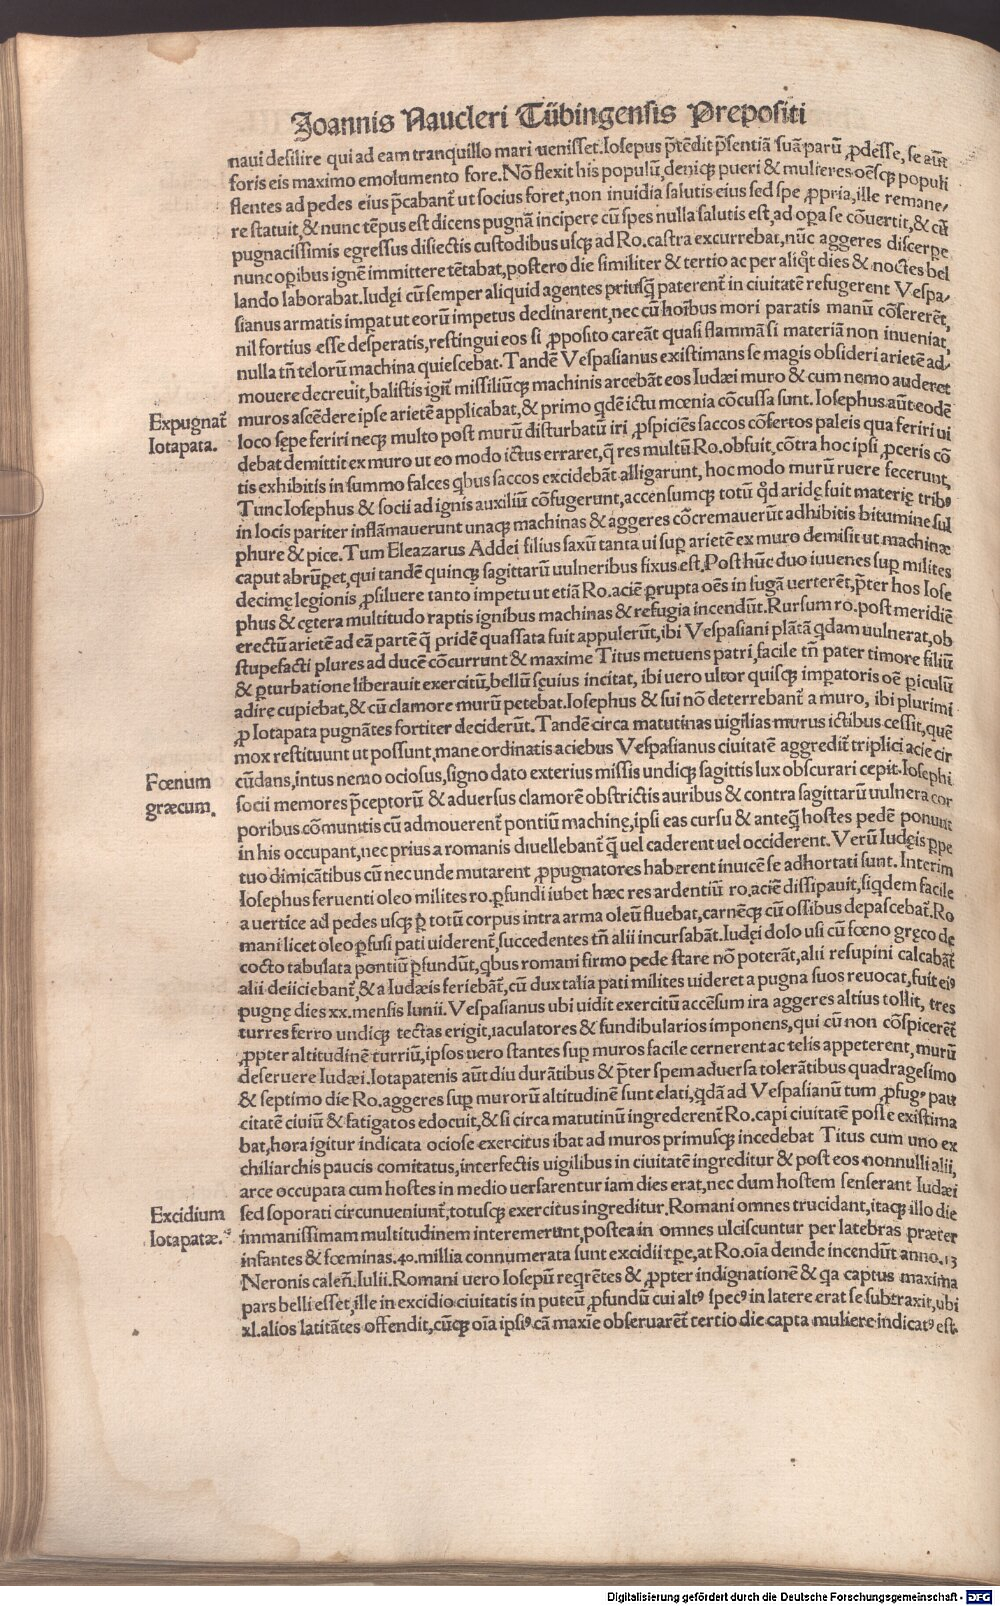 Joannis Naucleri Tübingensis Prepositi
naui desilire qui ad eam tranquillo mari uenisset. Iosepus p̄tēdit p̄sentiā suā parū ꝓdesse, se aūt
foris eis maximo emolumento fore. Nō flexit his populū, deniqꝫ pueri & mulieres oēsqꝫ populi
flentes ad pedes eius p̄cabant̄ ut socius foret, non inuidia salutis eius sed spe ꝓpria, ille remane/
re statuit, & nunc tēpus est dicens pugnā incipere cū spes nulla salutis est, ad oꝑa se cōuertit, & cū
pugnacissimis egressus disiectis custodibus usqꝫ ad Ro. castra excurrebat, nūc aggeres discerpe
nunc oꝑibus ignē immittere tētabat, postero die similiter & tertio ac per aliqͦt dies & noctes bel
lando laborabat. Iudęi cū semper aliquid agentes priusꝗ̄ paterent̄ in ciuitatē refugerent Vespa/
sianus armatis imꝑat ut eorū impetus declinarent, nec cū hoībus mori paratis manū cōsererēt,
nil fortius esse desperatis, restingui eos si ꝓposito careāt quasi flammā si materiā non inueniat,
nulla tn̄ telorū machina quiescebat. Tandē Vespasianus existimans se magis obsideri arietē ad/
mouere decreuit, balistis igit̄ missiliūqꝫ machinis arcebāt eos Iudæi muro & cum nemo auderet
Expugnat̄
Iotapata.
muros ascēdere ipse arietē applicabat, & primo qdē ictu mœnia cōcussa sunt. Iosephus aūt eodē
loco sępe feriri neqꝫ multo post murū disturbatū iri ꝓspiciēs saccos cōfertos paleis qua feriri ui
debat demittit ex muro ut eo modo ictus erraret, q̄ res multū Ro. obfuit, cōtra hoc ipsi ꝓceris cō
tis exhibitis in summo falces qbus saccos excidebāt alligarunt, hoc modo murū ruere fecerunt,
Tunc Iosephus & socii ad ignis auxiliū cōfugerunt, accensumqꝫ totū qͦd aridę fuit materię tribꝰ
in locis pariter inflāmauerunt unaqꝫ machinas & aggeres cōcremauerūt adhibitis bitumine sul
phure & pice. Tum Eleazarus Addei filius saxū tanta ui suꝑ arietē ex muro demisit ut machinæ
caput abrūꝑet, qui tandē quinqꝫ sagittarū uulneribus fixus est. Post hūc duo iuuenes suꝑ milites
decimę legionis ꝓsiluere tanto impetu ut etiā Ro. aciē ꝑrupta oēs in fugā uerterēt, p̄ter hos Iose
phus & cętera multitudo raptis ignibus machinas & refugia incendūt. Rursum ro. post meridiē
erectū arietē ad eā partē q̄ pridē quassata fuit appulerūt, ibi Vespasiani plātā qdam uulnerat, ob
stupefacti plures ad ducē cōcurrunt & maxime Titus metuens patri, facile tn̄ pater timore filiū
& ꝑturbatione liberauit exercitū, bellū sęuius incitat, ibi uero ultor quisqꝫ imꝑatoris oē ꝑiculū
adire cupiebat, & cū clamore murū petebat. Iosephus & sui nō deterrebant̄ a muro, ibi plurimi
ꝓ Iotapata pugnātes fortiter deciderūt. Tandē circa matutinas uigilias murus ictibus cessit, quē
mox restituunt ut possunt, mane ordinatis aciebus Vespasianus ciuitatē aggredit̄ triplici acie cir
Fœnum
græcum.
cūdans, intus nemo ociosus, signo dato exterius missis undiqꝫ sagittis lux obscurari cepit. Iosephi
socii memores p̄ceptorū & aduersus clamorē obstrictis auribus & contra sagittarū uulnera cor
poribus cōmunitis cū admouerent̄ pontiū machinę, ipsi eas cursu & anteꝗ̄ hostes pedē ponunt
in his occupant, nec prius a romanis diuellebant̄ ꝗ̄ uel caderent uel occiderent. Verū Iudęis ꝑpe
tuo dimicātibus cū nec unde mutarent ꝓpugnatores haberent inuicē se adhortati sunt. Interim
Iosephus feruenti oleo milites ro. ꝑfundi iubet hæc res ardentiū ro. aciē dissipauit, siqdem facile
a uertice ad pedes usqꝫ ꝑ totū corpus intra arma oleū fluebat, carnēqꝫ cū ossibus depascebat. Ro
mani licet oleo ꝑfusi pati uiderent̄, succedentes tn̄ alii incursabāt. Iudęi dolo usi cū fœno gręco de
cocto tabulata pontiū ꝑfundūt, qbus romani firmo pede stare nō poterāt, alii resupini calcabāt̄
alii deiiciebant̄, & a Iudæis feriebāt̄, cū dux talia pati milites uideret a pugna suos reuocat, fuit eiꝰ
pugnę dies xx. mensis Iunii. Vespasianus ubi uidit exercitū accēsum ira aggeres altius tollit, tres
turres ferro undiqꝫ tectas erigit, iaculatores & fundibularios imponens, qui cū non cōspicerēt̄
ꝓpter altitudinē turriū, ipsos uero stantes suꝑ muros facile cernerent ac telis appeterent, murū
deseruere Iudæi. Iotapatenis aūt diu durātibus & p̄ter spem aduersa tolerātibus quadragesimo
& septimo die Ro. aggeres suꝑ murorū altitudinē sunt elati, qdā ad Vespasianū tum ꝓfugꝰ pau
citatē ciuiū & fatigatos edocuit, & si circa matutinū ingrederent̄ Ro. capi ciuitatē posse existima
bat, hora igitur indicata ociose exercitus ibat ad muros primusqꝫ incedebat Titus cum uno ex
chiliarchis paucis comitatus, interfectis uigilibus in ciuitatē ingreditur & post eos nonnulli alii,
arce occupata cum hostes in medio uersarentur iam dies erat, nec dum hostem senserant Iudæi
Excidium
Iotapatæ.
sed soporati circunueniunt̄, totusqꝫ exercitus ingreditur. Romani omnes trucidant, itaqꝫ illo die
immanissimam multitudinem interemerunt, postea in omnes ulciscuntur per latebras præter
infantes & fœminas. 40. millia connumerata sunt excidii tꝑe, at Ro. oīa deinde incendūt anno. 13
Neronis caleñ. Iulii. Romani uero Iosepū reqrētes & ꝓpter indignationē & qa captus maxima
pars belli esset, ille in excidio ciuitatis in puteū ꝓfundū cui altꝰ specꝰ in latere erat se subtraxit, ubi
xl. alios latitātes offendit, cūqꝫ oīa ipsiꝰ cā maxīe obseruarēt̄ tertio die capta muliere indicatꝰ est.
Digitalisierung gefördert durch die Deutsche Forschungsgemeinschaft - DFG